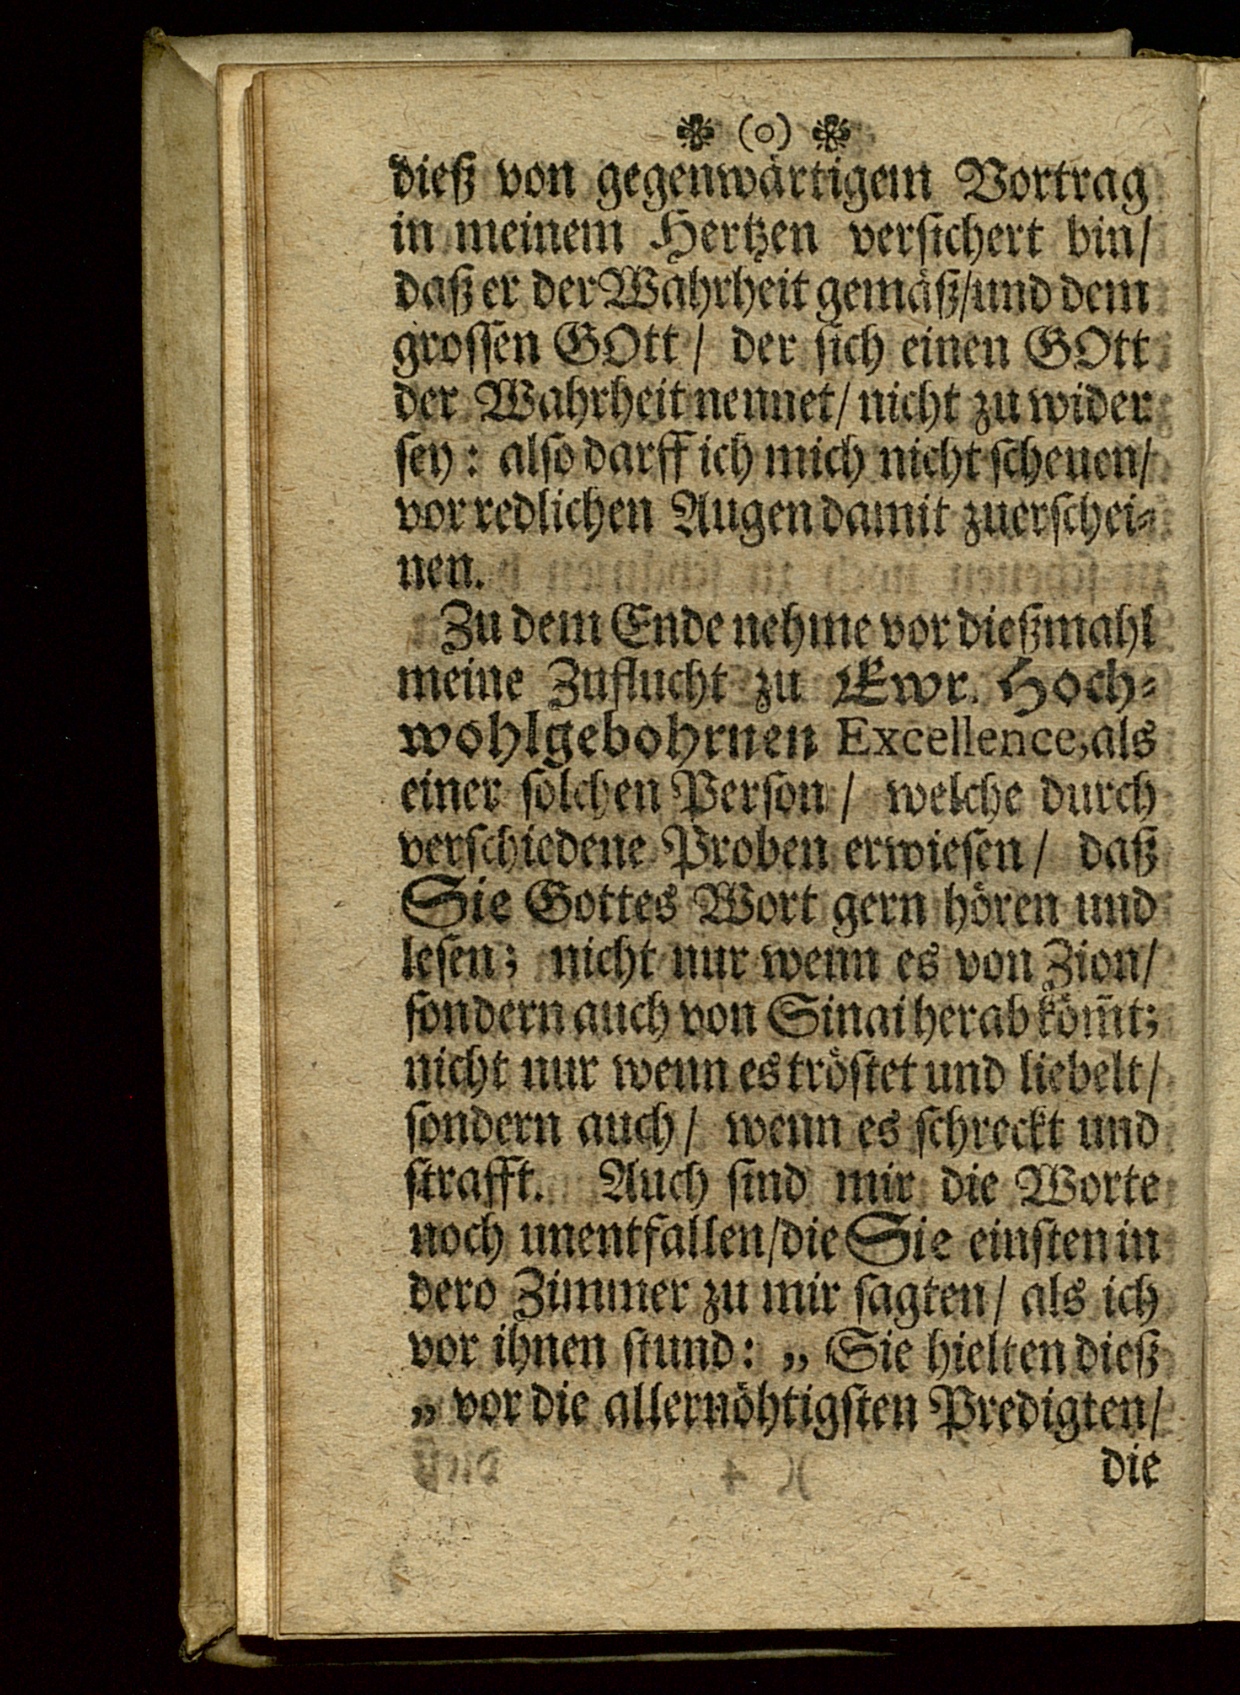 ❀ (o) ❀
dieß von gegenwärtigem Vortrag
in meinem Hertzen versichert bin/
daß er der Wahrheit gemäß/und dem
grossen GOtt/ der sich einen GOtt
der Wahrheit nennet/ nicht zu wider
sey: also darff ich mich nicht scheuen/
vor redlichen Augen damit zuerschei-
nen.
Zu dem Ende nehme vor dießmahl
meine Zuflucht zu Ewr. Hoch-
wohlgebohrnen Excellence, als
einer solchen Person/ welche durch
verschiedene Proben erwiesen/ daß
Sie Gottes Wort gern hören und
lesen; nicht nur wenn es von Zion/
sondern auch von Sinai herab köm̃t;
nicht nur wenn es tröstet und liebelt/
sondern auch/ wenn es schreckt und
strafft. Auch sind mir die Worte
noch unentfallen/die Sie einsten in
dero Zimmer zu mir sagten/ als ich
vor ihnen stund: „ Sie hielten dieß
„ vor die allernöhtigsten Predigten/
die